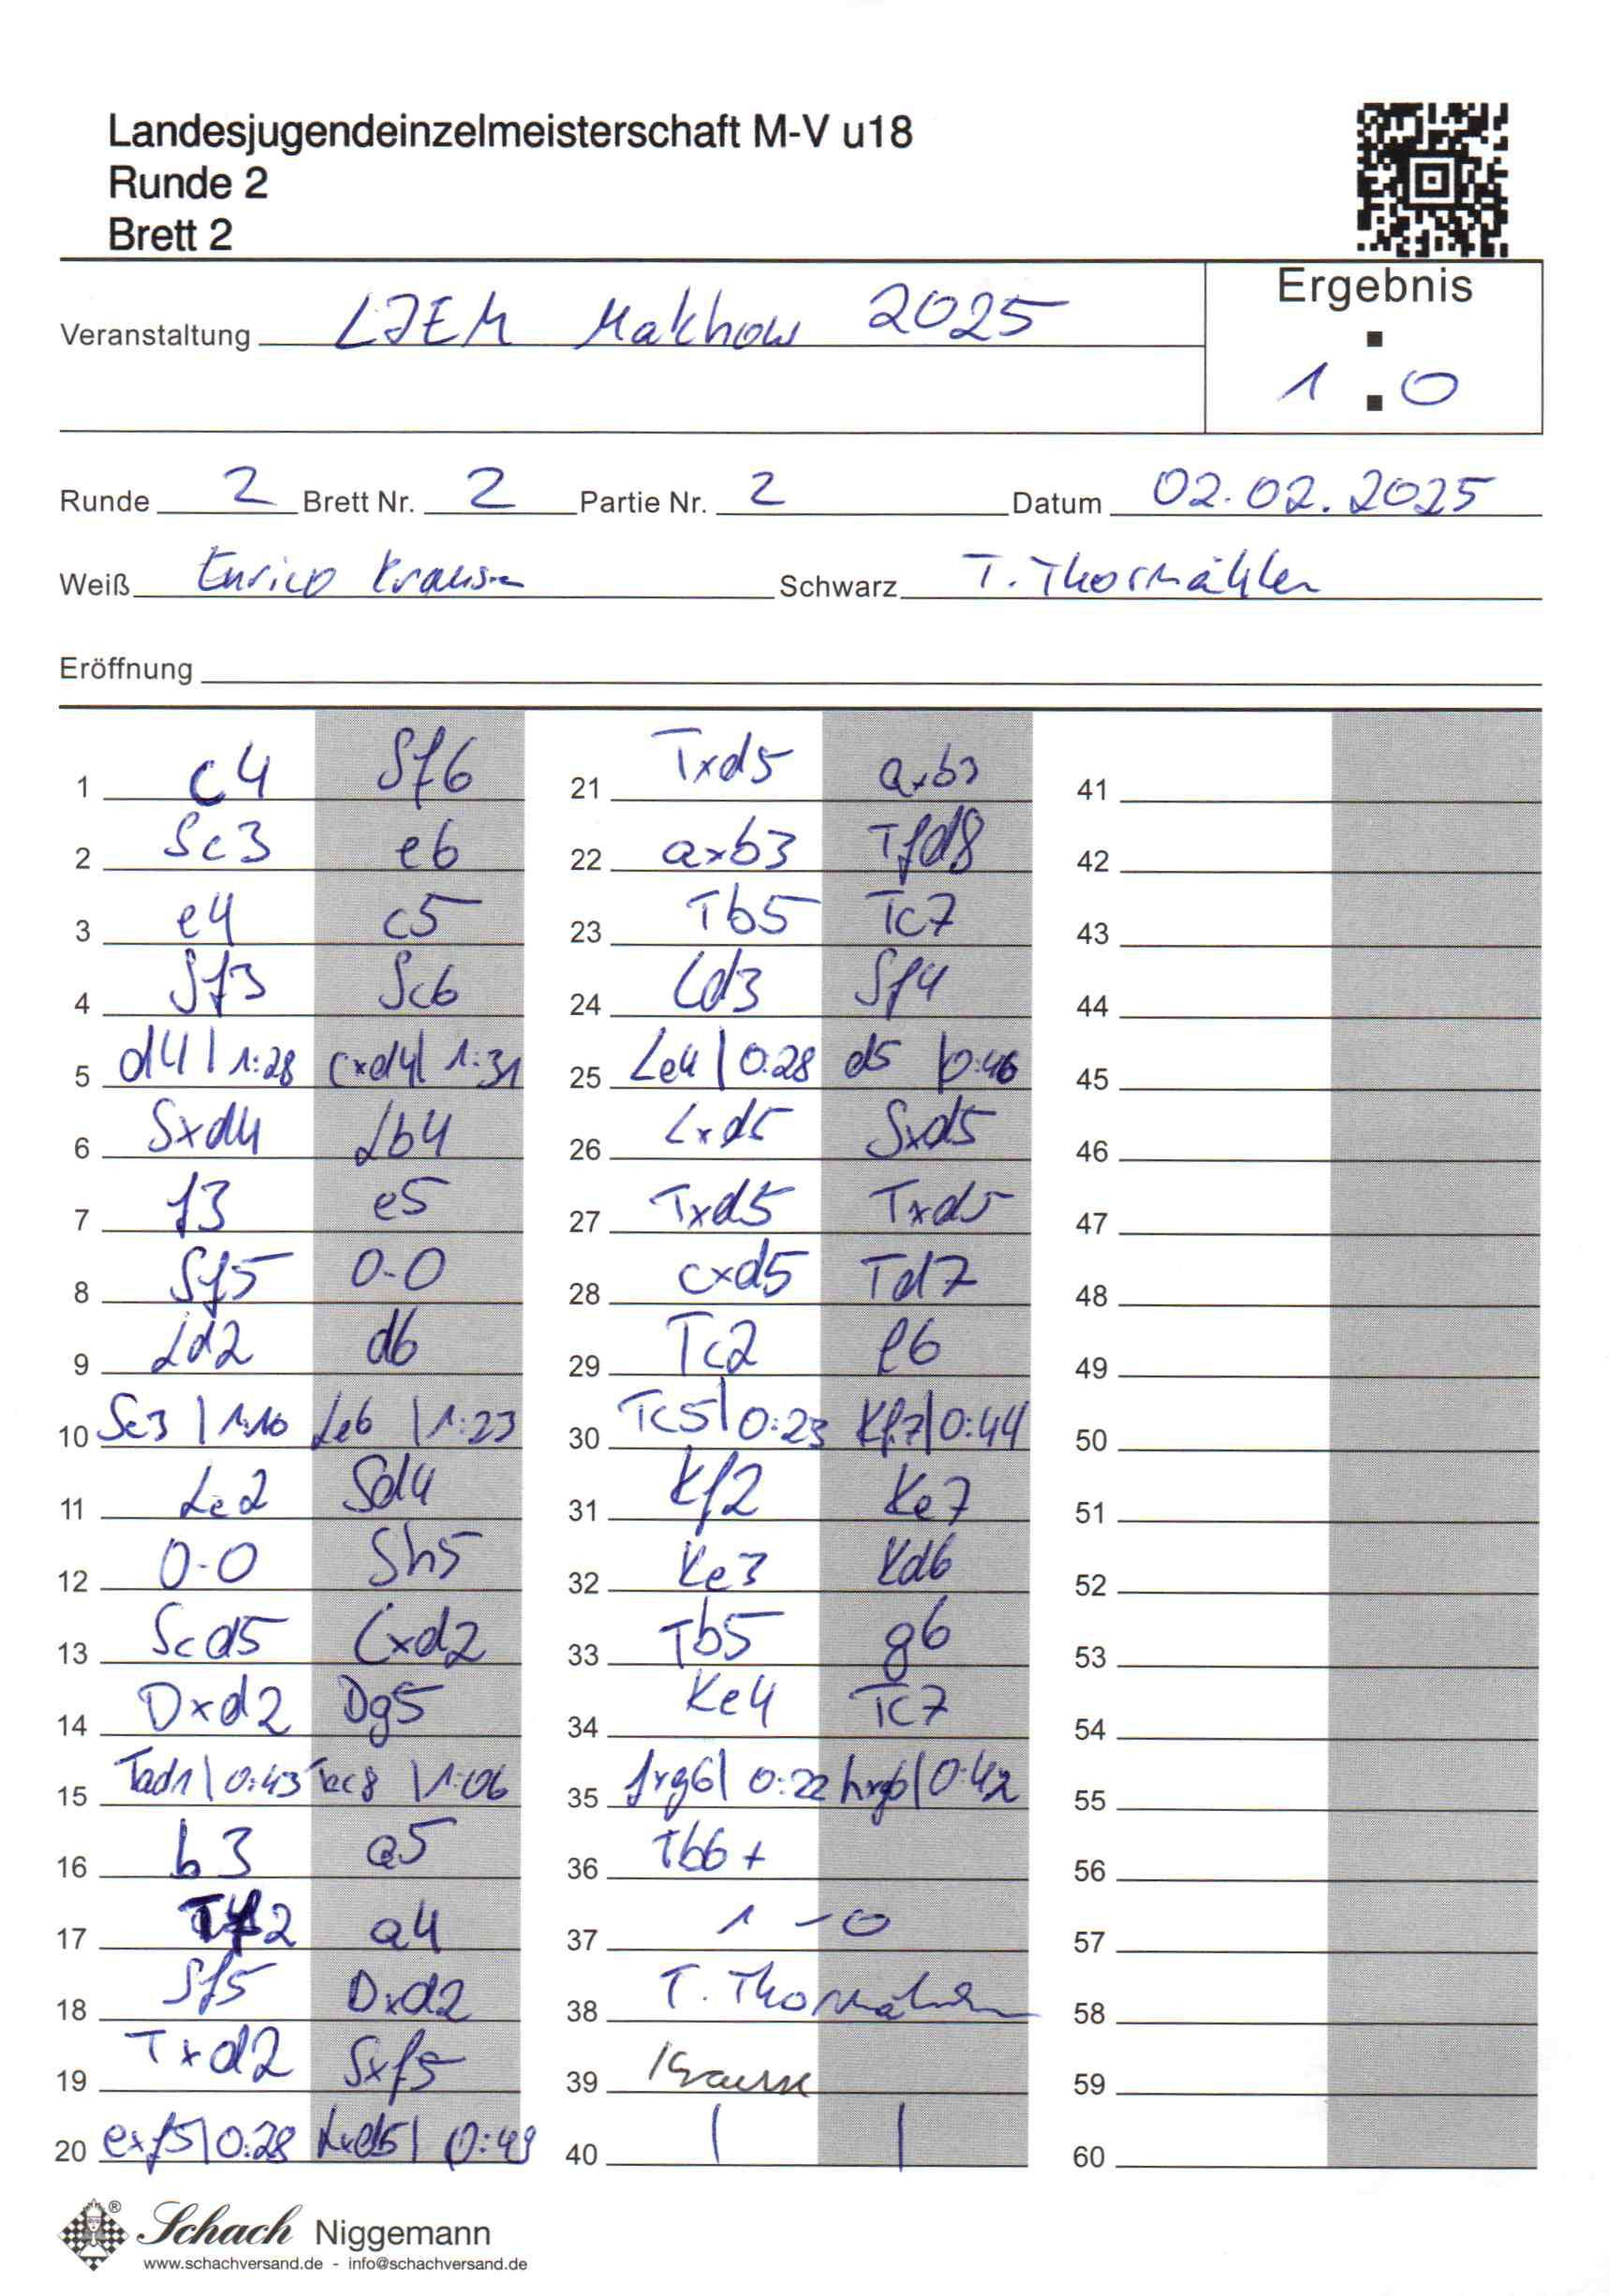 Landesjugendeinzelmeisterschaft M-V u18
Runde 2
Brett 2
Ergebnis
Veranstaltung LJEM Malchow 2025
1 : 0
Runde 2 Brett Nr. 2 Partie Nr. 2 Datum 02.02.2025
Weiß Enrico Krause Schwarz T. Thormählen
Eröffnung
1 c4 Sf6
2 Sc3 e6
3 e4 c5
4 Sf3 Sc6
5 d4 | 1:28 cxd4 | 1:31
6 Sxd4 Lb4
7 f3 e5
8 Sf5 0-0
9 Ld2 d6
10 Se3 | 1:10 Le6 | 1:23
11 Le2 Sd4
12 0-0 Sh5
13 Scd5 Lxd2
14 Dxd2 Dg5
15 Tad1 | 0:43 Tac8 | 1:06
16 b3 a5
17 Tf2 a4
18 Sf5 Dxd2
19 Txd2 Sxf5
20 exf5 | 0:28 Lxd5 | 0:49
21 Txd5 axb3
22 axb3 Tfd8
23 Tb5 Tc7
24 Ld3 Sf4
25 Le4 | 0:28 d5 | 0:46
26 Lxd5 Sxd5
27 Txd5 Txd5
28 cxd5 Td7
29 Tc2 f6
30 Tc5 | 0:23 Kf7 | 0:44
31 Kf2 Ke7
32 Ke3 Kd6
33 Tb5 g6
34 Ke4 Tc7
35 fxg6 | 0:22 hxg6 | 0:42
36 Tb6+
37 1-0
38 T. Thormählen
39 Krause
40 | |
41
42
43
44
45
46
47
48
49
50
51
52
53
54
55
56
57
58
59
60
® Schach Niggemann
www.schachversand.de - info@schachversand.de